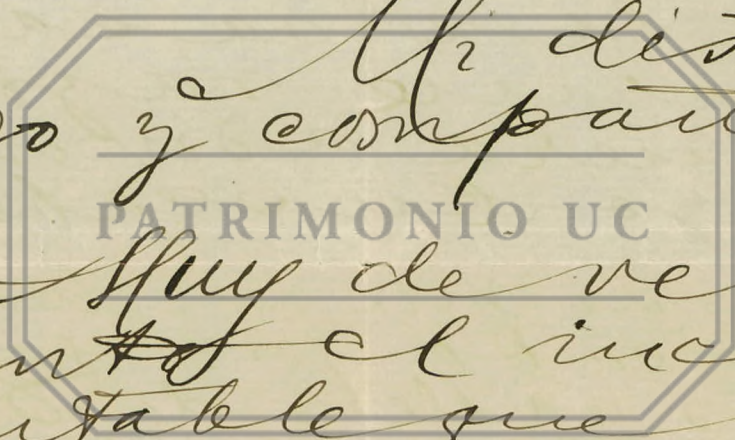 Mi dis
o y compañ
PATRIMONIO UC
Muy de ve
nto el inc
ntable que